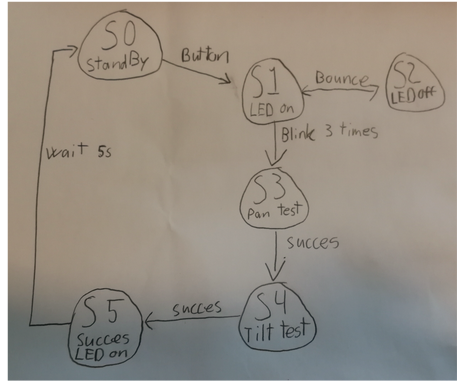 S0
StandBy
Button
S1
LED on
Bounce
S2
LED off
Blink 3 times
Wait 5s
S3
Pan test
succes
S4
Tilt test
succes
S5
Succes
LED on